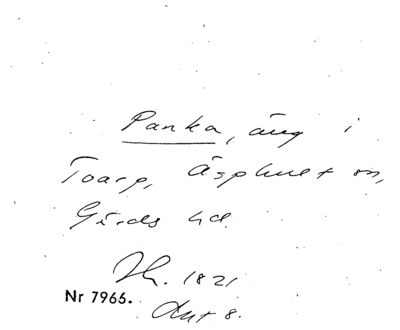 Panka, äng i
Toarp, Äsphult sn,
Gärds hd.
1821
Nr 7966.
Akt 8.